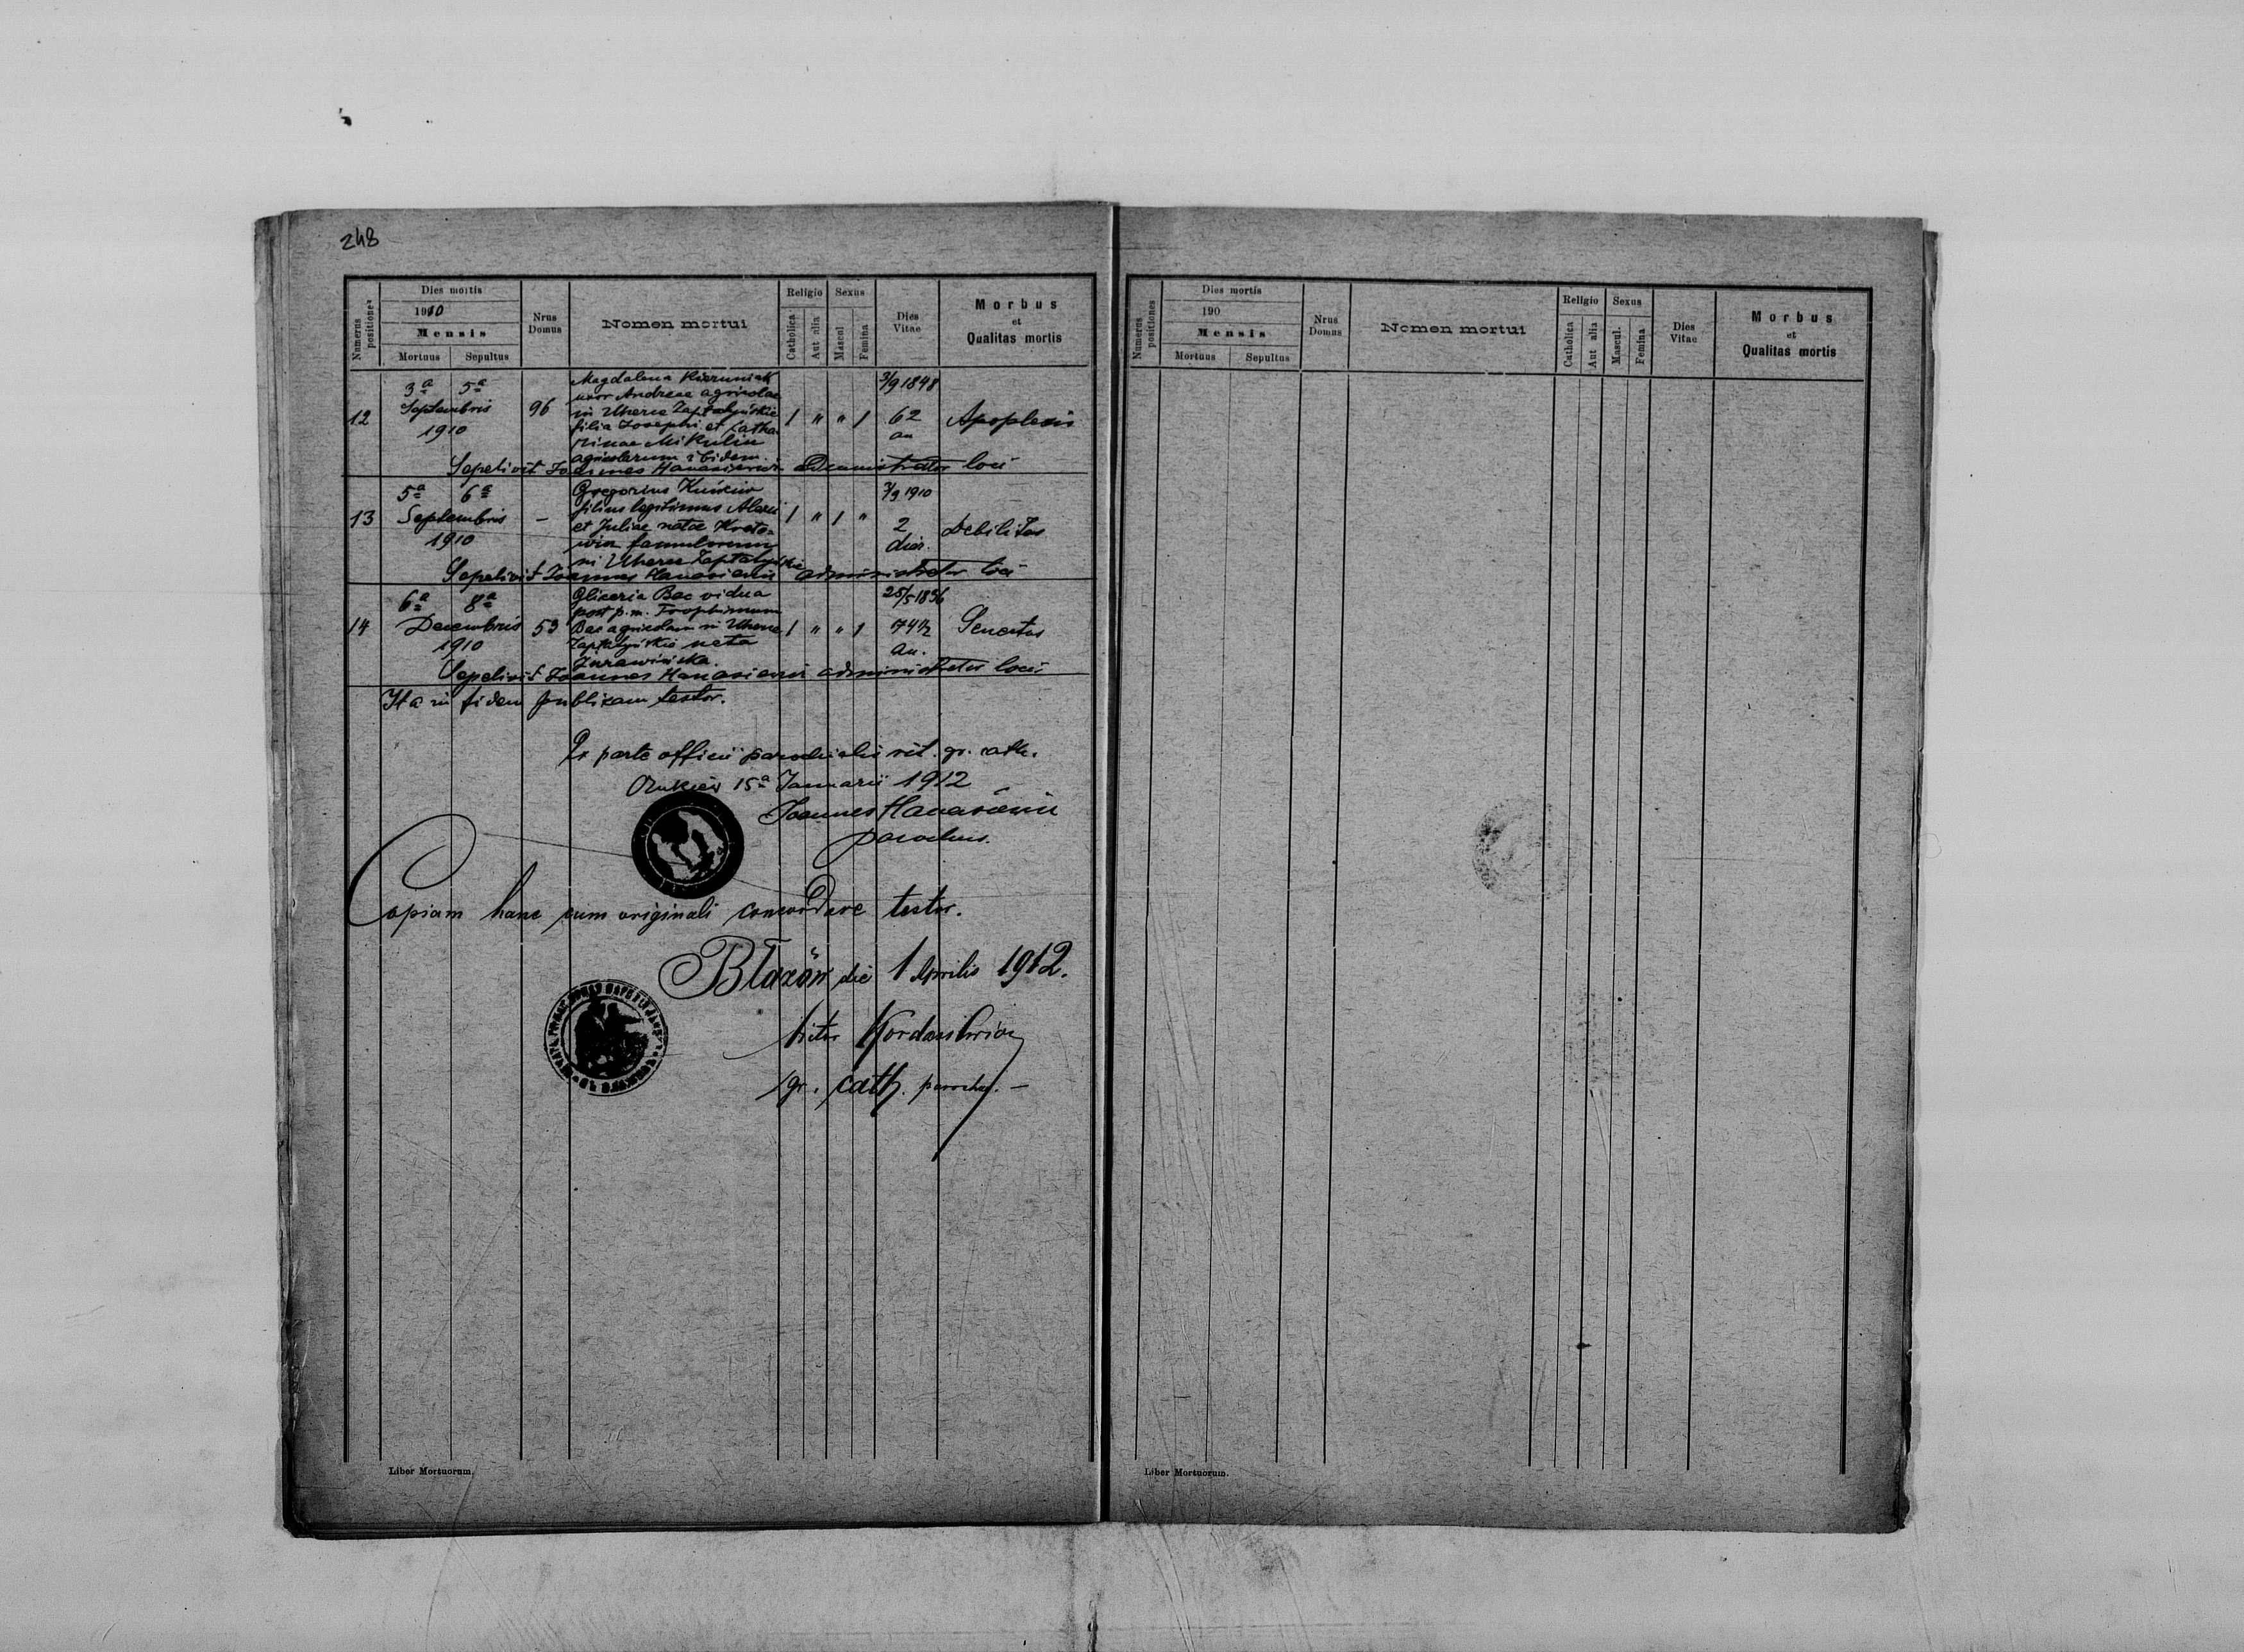 248
Numerus positiones
Dies mortis
1910
Mensis
Mortuus Sepultus
Nrus Domus
Nomen mortui
Religio
Catholica
Aut alia
Sexus
Mascul.
Femina
Dies Vitae
Morbus
et
Qualitas mortis
12
3ª 5ª
Septembris
1910
96
Magdalena Kiezuniak
uxor Andreae agricolae
in Uherce Zapłatyńskie
filia Josephi et Catha-
rinae Mikulin
agricolarum ibidem.
1 " " 1
3/9 1848
62
an
Apoplexis
Sepelivit Joannes Hanasiewicz Administrator loci
13
5ª 6ª
Septembris
1910
–
Gregorius
filius legitimus
et Juliae natae
famulorum
in Uherce Zapłatyńskie
1 " 1 "
3/9 1910
2
dies.
Debilitas
Sepelivit Joannes Hanasiewicz administrator loci
14
6ª 8ª
Decembris
1910
53
Gliceria Bac vidua
post p.m. Trophimum
Bac agricolam in Uherce
Zapłatyńskie nata
Żurawińska.
1 " " 1
25/5 1836
74½
an.
Senectus
Sepelivit Joannes Hanasiewicz administrator loci
Ita in fidem publicam testor.
Ex parte officii parochialis rit. gr. cath.
15ª Januarii 1912
Joannes Hanasiewicz
parochus.
Copiam hanc cum originali concordare testor.
Błażów die 1 Aprilis 1912.
gr. cath. parochus. –
Liber Mortuorum.
Numerus positiones
Dies mortis
190
Mensis
Mortuus Sepultus
Nrus Domus
Nomen mortui
Religio
Catholica
Aut alia
Sexus
Mascul.
Femina
Dies Vitae
Morbus
et
Qualitas mortis
Liber Mortuorum.